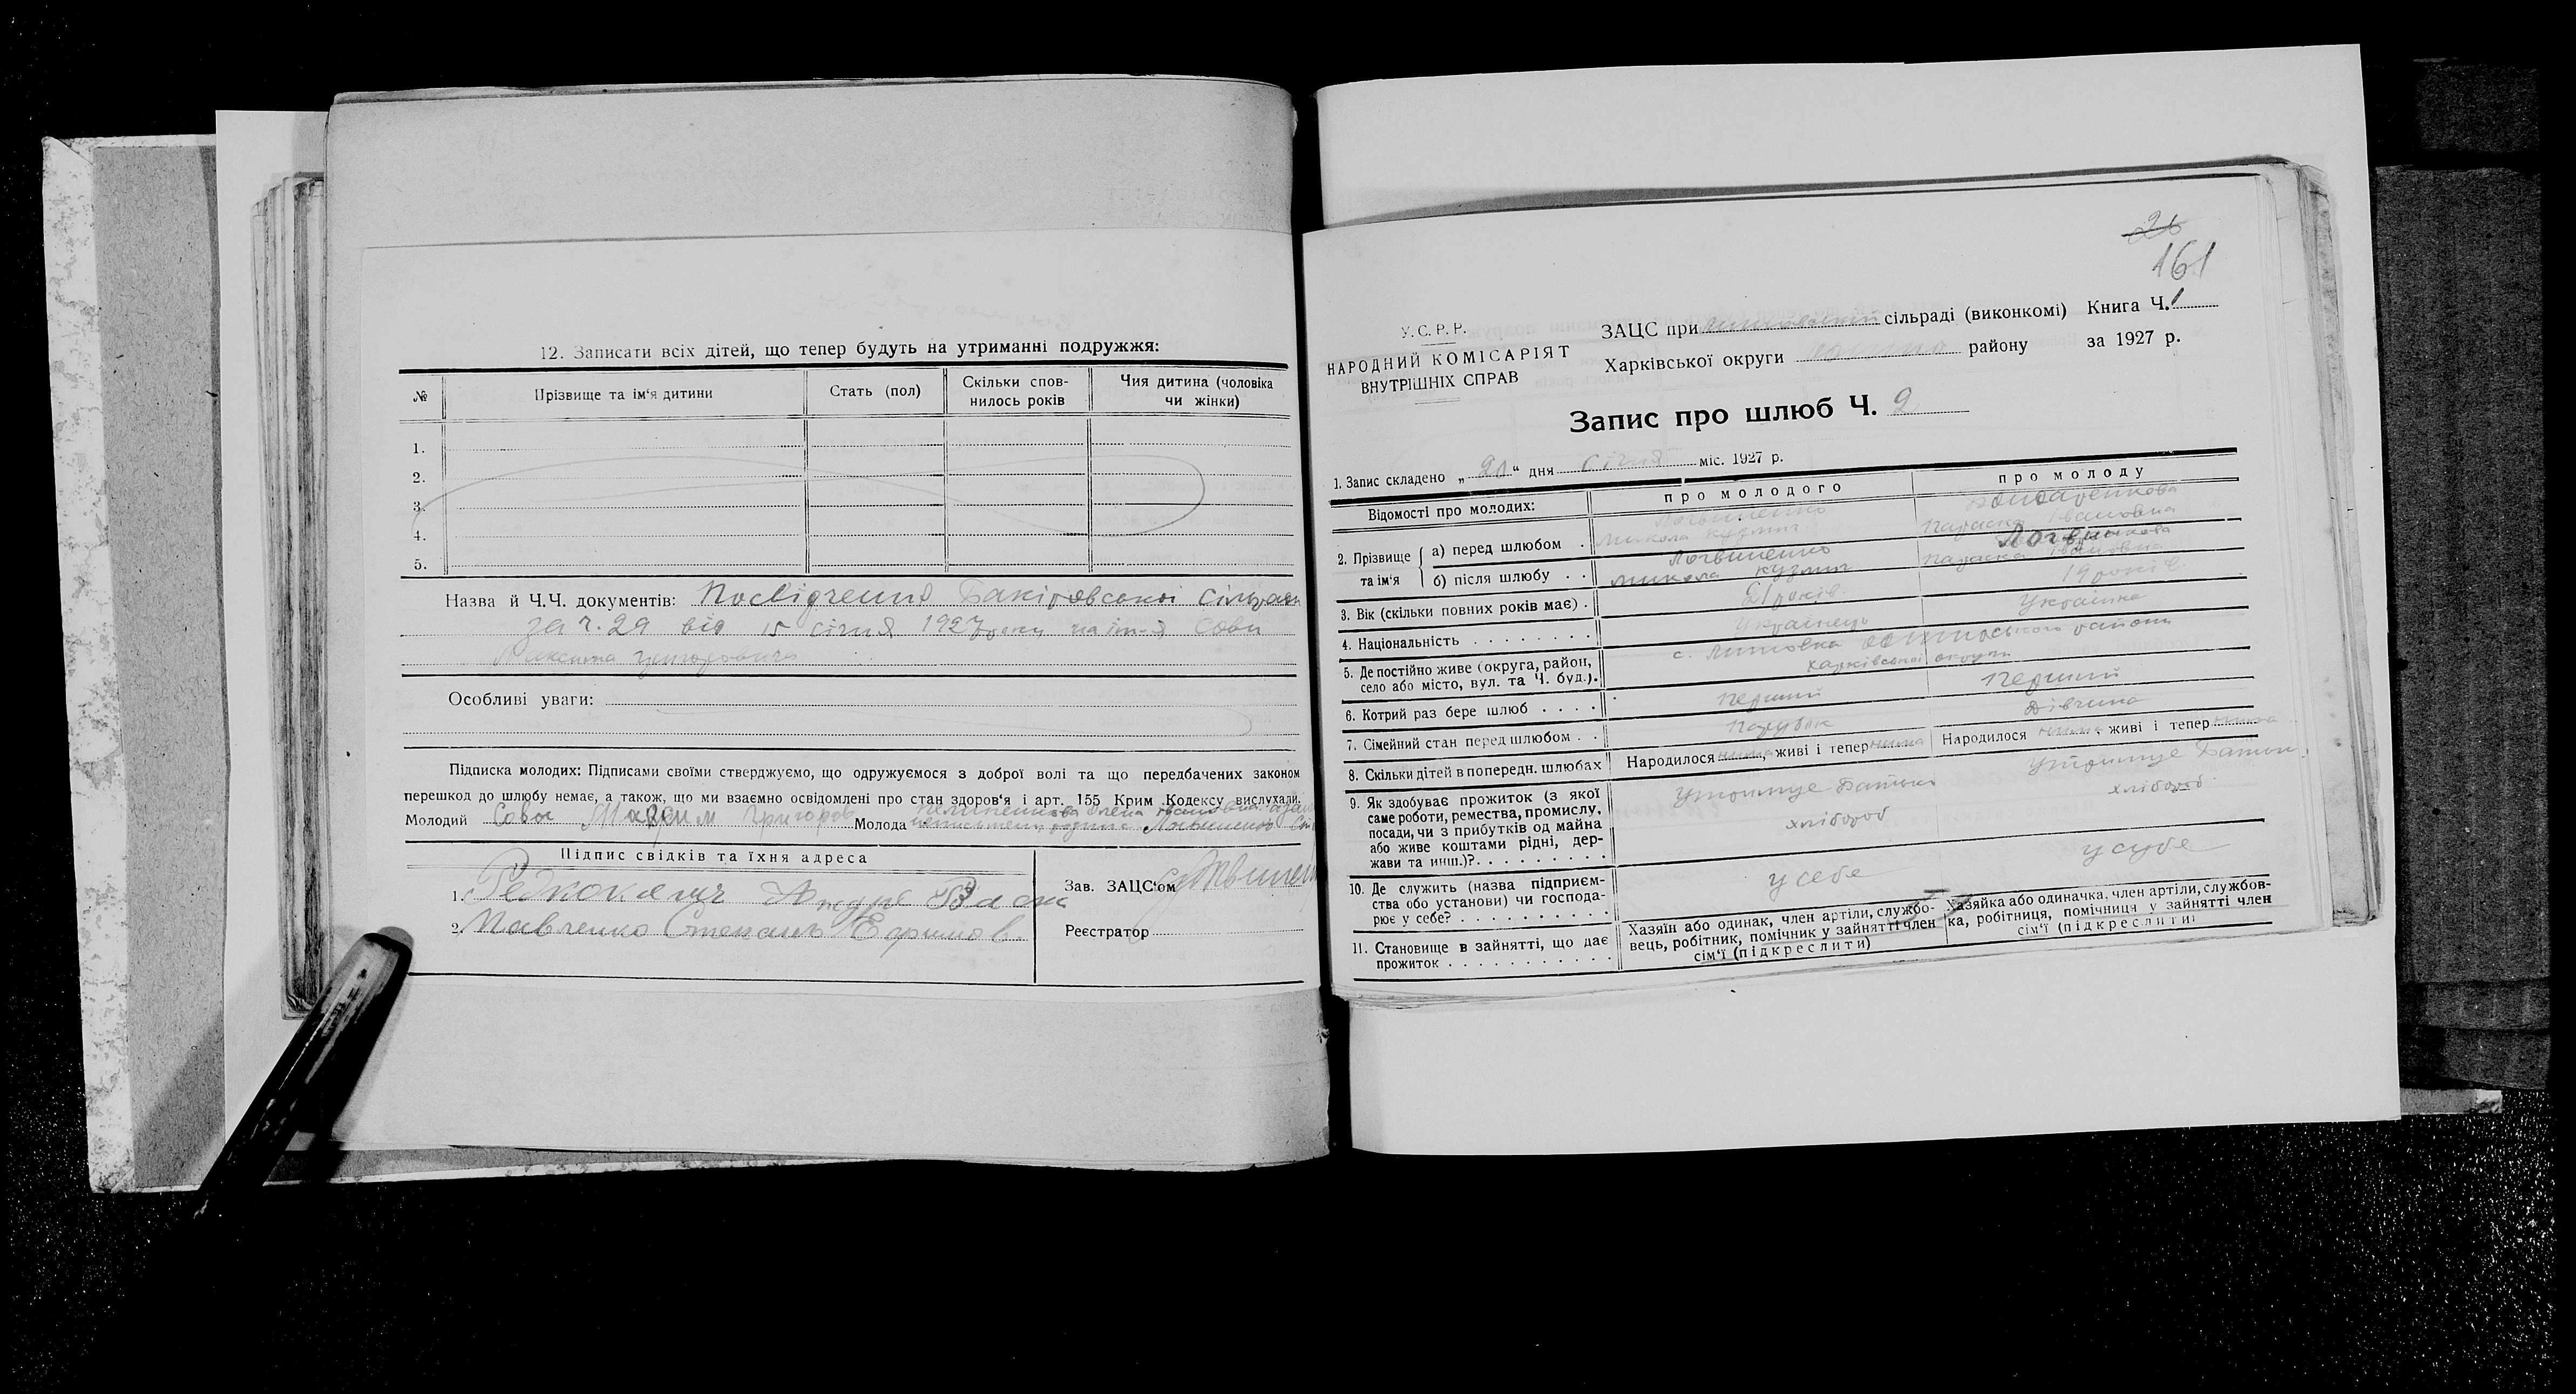 12. Записати всіх дітей, що тепер будуть на утриманні подружжя:
№ Прізвище та ім'я дитини Стать (пол) Скільки спов-нилось років Чия дитина (чоловіка чи жінки)
1.
2.
3.
4.
5.
Назва й Ч.Ч. документів: Посвідчення Бакіровської сільради
за ч. 29 від 15 січня 1927 року на ім-я Сови
Максима Григоровича
Особливі уваги:
Підписка молодих: Підписами своїми стверджуємо, що одружуємося з доброї волі та що передбачених законом
перешкод до шлюбу немає, а також, що ми взаємно освідомлені про стан здоров'я і арт. 155 Крим Кодексу вислухали.
Молодий Сова Максим Григоров Молода Олена Івановна
Підпис свідків та їхня адреса
1.
2. Павченко Степанъ Ефимов.
Зав. ЗАЦС'ом
Реєстратор
26
161
У.С.Р.Р.
НАРОДНИЙ КОМІСАРІЯТ
ВНУТРІШНІХ СПРАВ
ЗАЦС при сільраді (виконкомі) Книга Ч. 1
Харківської округи району за 1927 р.
Запис про шлюб Ч. 2
1. Запис складено „20“ дня січня міс. 1927 р.
Відомості про молодих: про молодого про молоду
2. Прізвище та ім'я
а) перед шлюбом Логвиненко Микола Кузмич Бондаренкова Параска Івановна
б) після шлюбу Логвиненко Микола Кузмич Параска Івановна
3. Вік (скільки повних років має) 21 років 19 років
4. Національність Українець Українка
5. Де постійно живе (округа, район,
село або місто, вул. та Ч. буд.). с. району
Харківської округи
6. Котрий раз бере шлюб Перший Перший
7. Сімейний стан перед шлюбом Парубок Дівчина
8. Скільки дітей в попередн. шлюбах Народилося нима, живі і тепер нима Народилося нима живі і тепер нима
9. Як здобуває прожиток (з якої
саме роботи, ремества, промислу,
посади, чи з прибутків од майна
або живе коштами рідні, дер-
жави та инш.)? Утримує Батько хлібороб Утримує Батько хлібороб
10. Де служить (назва підприєм-
ства або установи) чи господа-
рює у себе? у себе у субе
11. Становище в зайнятті, що дає
прожиток
Хазяїн або одинак, член артілі, службо-
вець, робітник, помічник у зайнятті член
сім'ї (підкреслити)
Хазяйка або одиначка, член артіли, службов-
ка, робітниця, помічниця у зайнятті член
сім'ї (підкреслити)